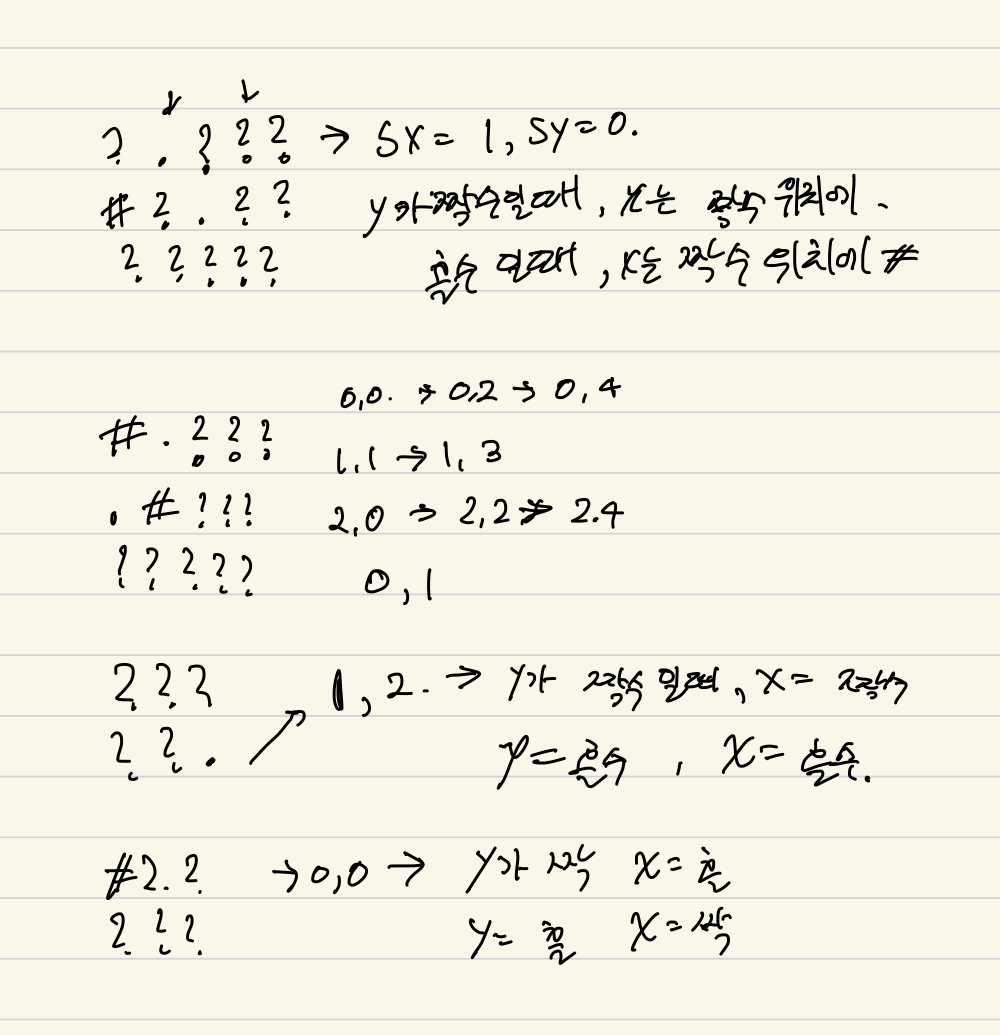 ? . ? ? ? → Sx = 1, Sy = 0.
# ? . ? ? y가 짝수일때, x는 위치에 .
? ? ? ? ? 홀수 일때, x는 짝수 위치에 #
0,0. → 0,2 → 0,4
# . ? ? ?
1,1 → 1,3
. # ? ? ? 2,0 → 2,2 → 2.4
? ? ? ? ? 0,1
? ? ? 1,2. → y가 짝수 일때, x = 짝수
? ? . y = 홀수, x = 홀수.
# ? . ? → 0,0 → y가 짝 x = 홀
? ? ? y = 홀 x = 짝